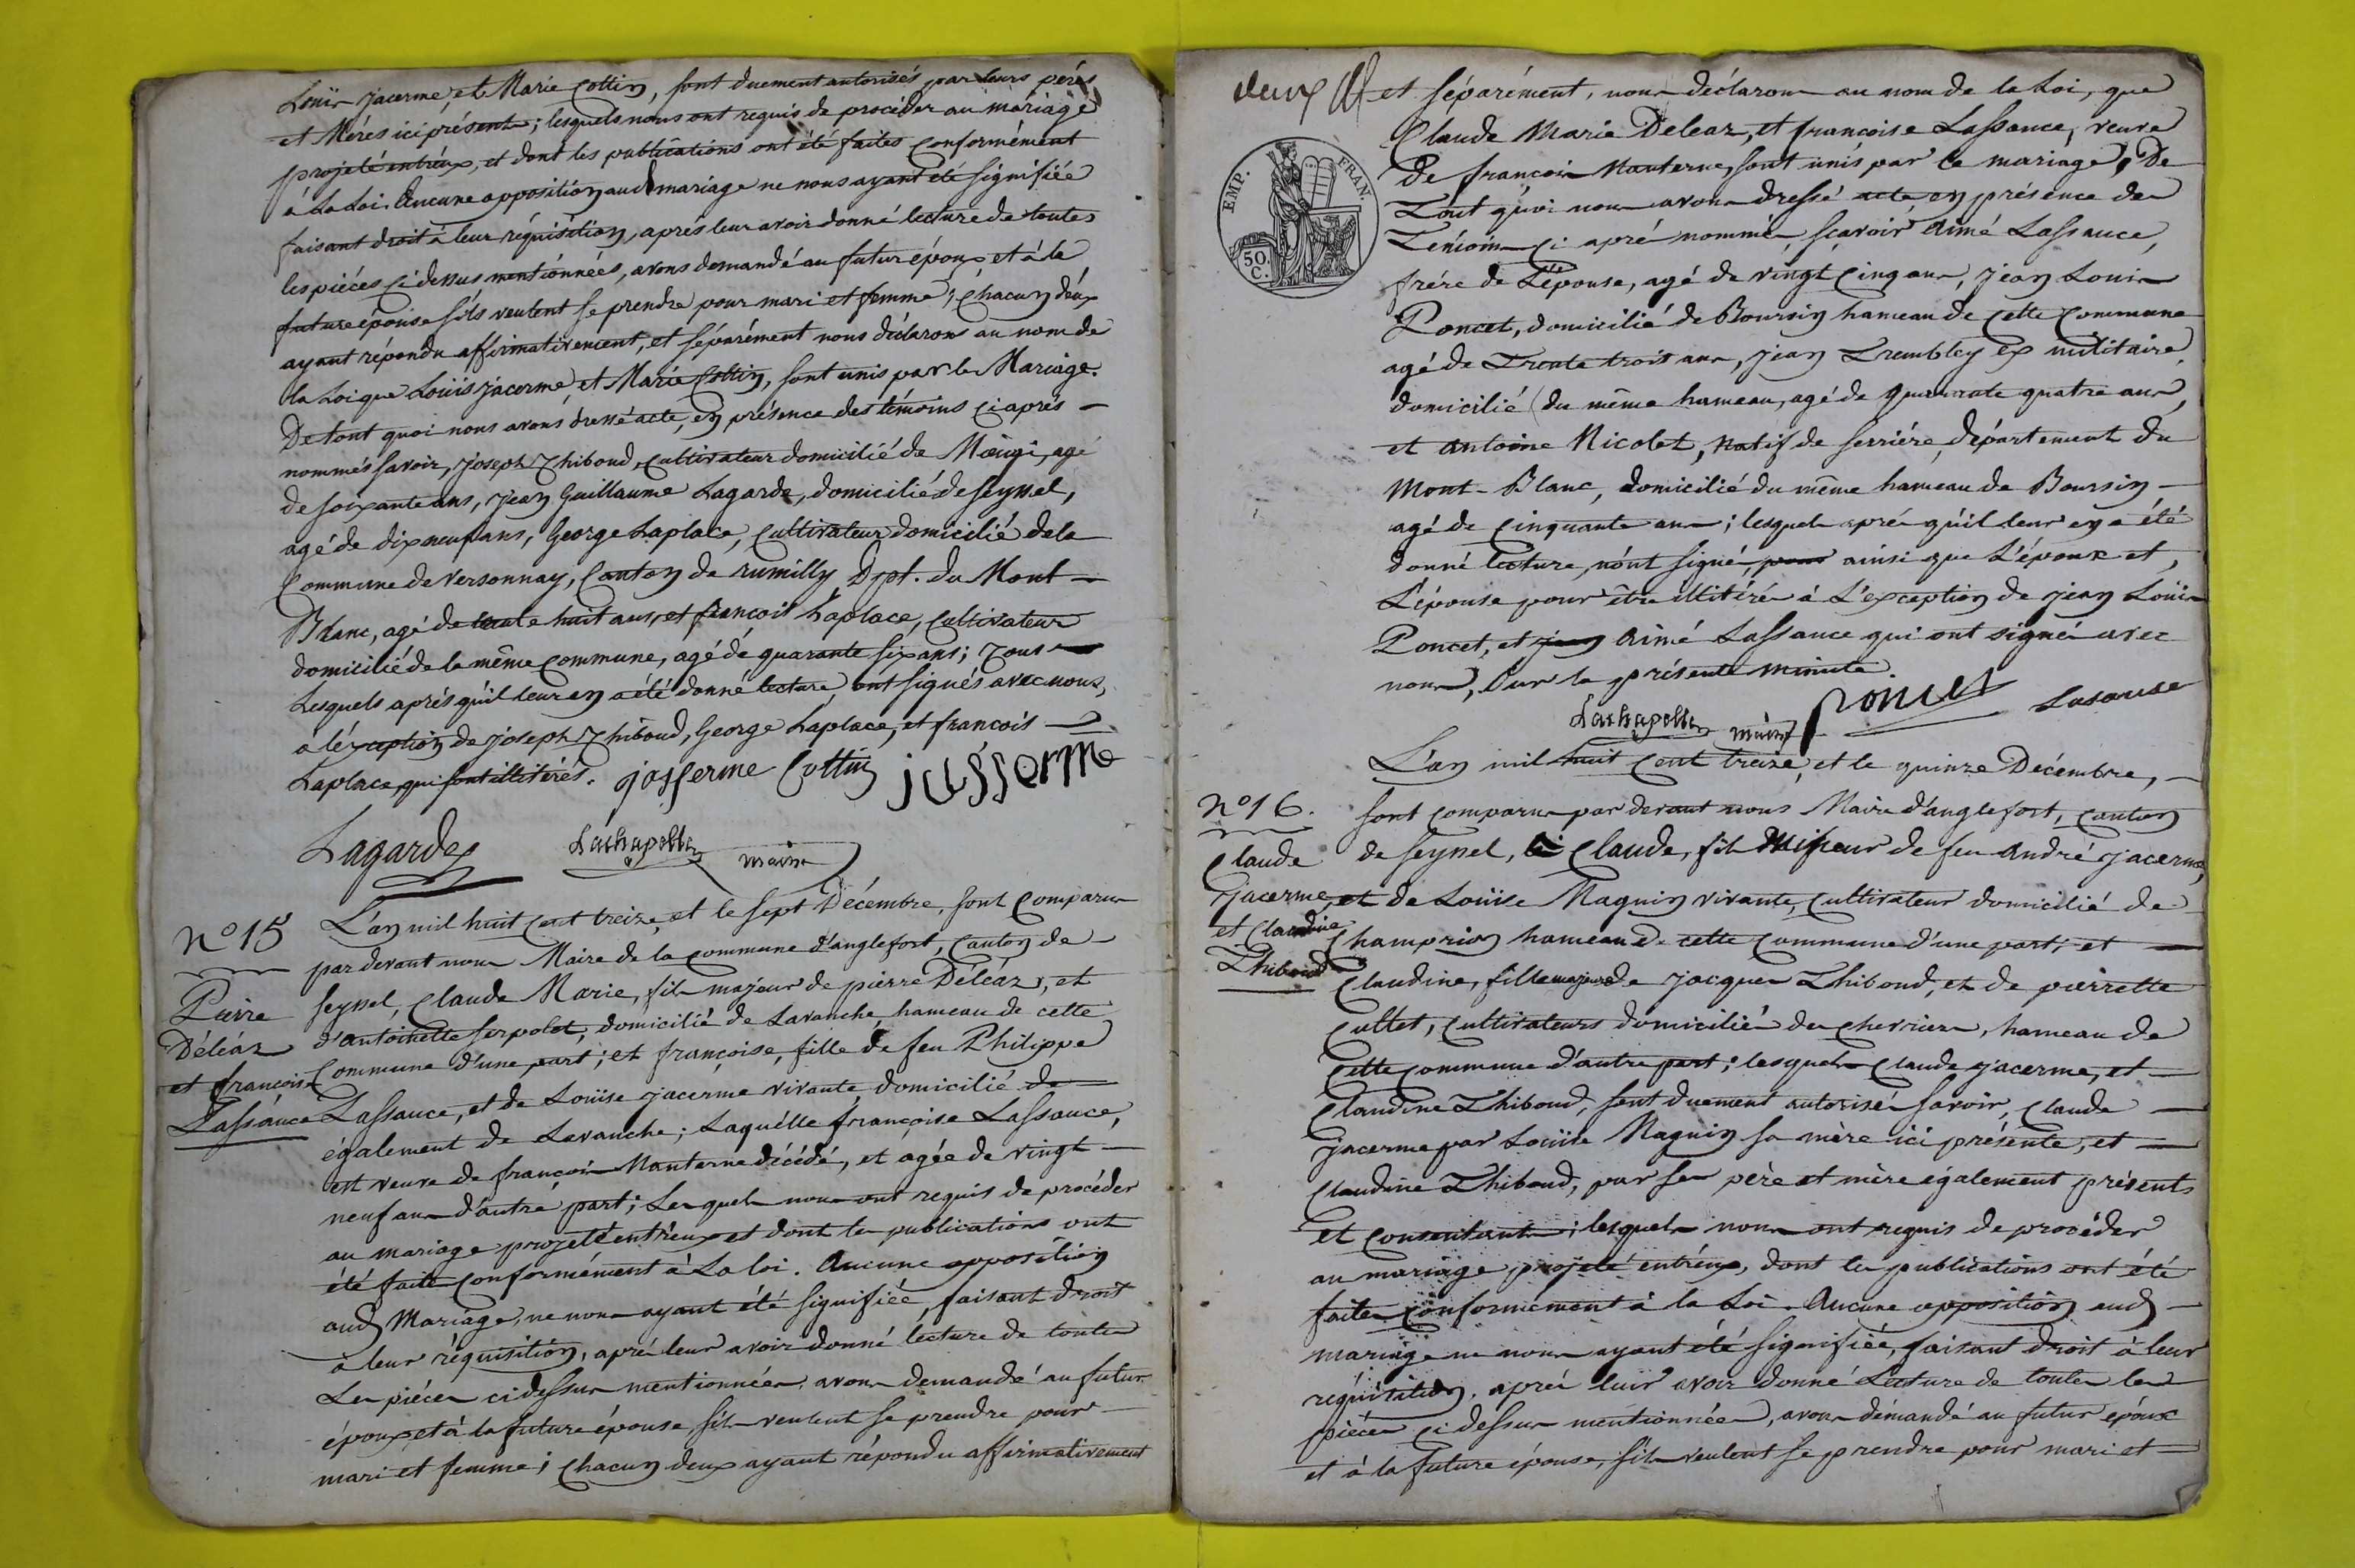 Louis jacerme, et Marie Cottin, sont duement autorisés par leurs pérés
et Mérés ici présents; lesquels nous ont requis de procéder au mariage
projeté entréux, et dont les publications ont été faites conformément
à La Loi. Aucune opposition aud mariage ne nous ayant été signifiée
faisant droit à leur réquisition, aprés leur avoir donné lecture de toutes
les piéces ci dessus mentionnées, avons demandé au futur époux et à la
future épouse s'ils veulent se prendre pour mari et femme; chacun d'eux
ayant répondu affirmativement, et séparément nous déclarons au nom de
la Loi que Louis jacerme, et Marie Cottin, sont unis par le Mariage.
De tout quoi nous avons dressé acte, en présence des témoins ci aprés
nommés savoir, joseph Thiboud, cultivateur domicilié de Mœugi, agé
de soixante ans, jean Guillaume Lagarde, domicilié de seyssel,
agé de dix neuf ans, George Laplace, cultivateur domicilié de la
Commune de Versonnay, Canton de rumilly Dpt. du Mont-
Blanc, agé de trente huit ans, et francois Laplace, cultivateur
domicilié de la même commune, agé de quarante six ans; Tous
Lesquels aprés qu'il leur en a été donné lecture, ont signés avec nous,
à léxception de joseph Thiboud, George Laplace, et francois
Laplace, qui sont illitérés. josserme Cottin jusserme
Lagarde Lachapelle maire
N° 15 L'an mil huit cent treize, et le sept Décembre, sont comparus
par devant nous Maire de la commune d'anglefort, canton de
Pierre seyssel, Claude Marie, fils majeur de pierre Déléaz, et
Déléaz d'antoinette serpolet, domicilié de Lavanche, hameau de cette
et françoise Commune d'une part; et françoise, fille de feu Philippe
Lassance Lassance, et de Louise jacerme vivante, domicilié de
également de Lavanche; Laquélle françoise Lassance,
est veuve de françois Nanterne décédé, et agée de vingt
neuf ans d'autre part; Lesquels nous ont requis de procéder
au mariage projeté entr'eux et dont les publications ont
été faite conformément à La loi. Aucune opposition
aud Mariage, ne nous ayant été signifiée, faisant droit
à leur réquisition, aprés leur avoir donné lecture de toutes
Les piéces ci dessus mentionnées, avons demandé au futur
époux et à la future épouse, s'ils veulent se prendre pour
mari et femme; chacun deux ayant répondu affirmativement
deux
et séparément, nous déclarons au nom de la Loi, que
Claude Marie Deleaz, et françoise Lassance, veuve
De francois Nanterne, sont unis par le mariage, De
EMP. FRAN.
50. C.
Tout qu'oi nous avons dressé acte en présence des
Témoins ci aprés nommés, sçavoir Aimé Lassance,
frére de L'épouse, agé de vingt cinq ans, jean Louis
Poncet, domicilié de Boursin hameau de cette Commune
agé de Trente trois ans, jean Trembley ex militaire,
domicilié du même hameau, agé de quarante quatre ans,
et Antoine Nicolet, Natif de serriére, département du
Mont-Blanc, domicilié du même hameau de Boursin
agé de cinquante ans; lesquels aprés qu'il leur en a été
donné lecture, n'ont signé, pour ainsi que L'époux et
L'épouse pour être illitérés à L'exception de jean Louis
Poncet, et jean Aimé Lassance qui ont signés avec
nous, Sur la présente minute.
Lachapelle maire Poncet Lasanse
L'an mil huit cent treize, et le quinze Décembre,
N° 16. sont comparus par devant nous Maire d'anglefort, canton
Claude de seyssel, Claude, fils Mineur de feu André jacerme,
jacerme et de Louise Maguin vivante, cultivateur domicilié de
et Claudine Champrion hameau de cette commune d'une part; et
Thiboud Claudine, fille majeure de jacques Thiboud, et de pierrette
Cullet, cultivateurs domiciliés des cherriers, hameau de
Cette commune d'autre part; lesquels Claude jacerme, et
Claudine Thiboud, sont duement autorisés savoir, Claude
jacerme par Louise Maguin sa mère ici présente, et
Claudine Thiboud, par ses père et mère également présents
et consentants; lesquels nous ont requis de procéder
au mariage projeté entréux, dont les publications ont été
faites conformément à la Loi. Aucune opposition aud
mariage ne nous ayant été signifiée, faisant droit à leur
réquisition, aprés leur avoir donné Lecture de toutes les
piéces ci dessus mentionnées, avons démandé au futur époux
et à la future épouse, s'ils veulent se prendre pour mari et